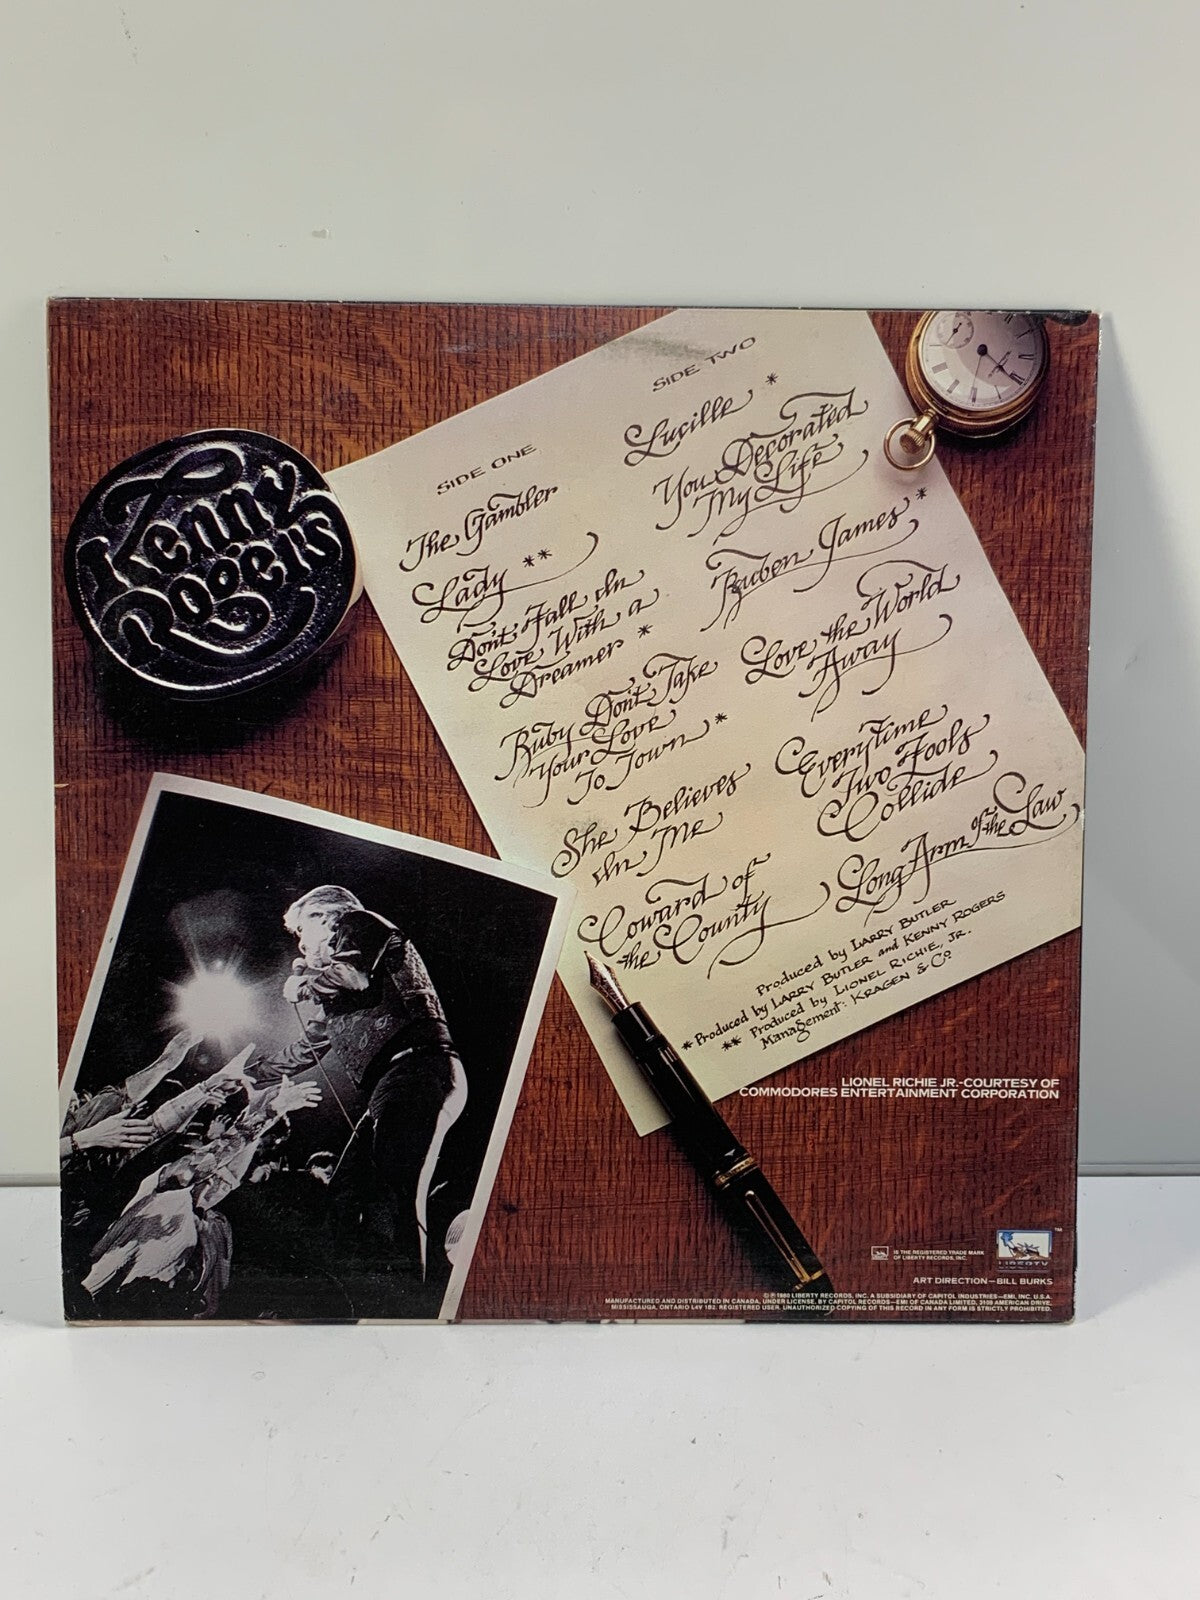 Kenny
Rogers
SIDE ONE
The Gambler
Lady **
Don't Fall In
Love With a
Dreamer *
Ruby Don't Take
Your Love
To Town *
She Believes
In Me
Coward of
the County
SIDE TWO
Lucille *
You Decorated
My Life
Ruben James *
Love the World
Away
Everytime
Two Fools
Collide
Long Arm of the Law
Produced by LARRY BUTLER
*Produced by LARRY BUTLER and KENNY ROGERS
** Produced by LIONEL RICHIE, JR.
Management: KRAGEN & Co
LIONEL RICHIE JR.-COURTESY OF
COMMODORES ENTERTAINMENT CORPORATION
IS THE REGISTERED TRADE MARK
OF LIBERTY RECORDS, INC.
TM
LIBERTY
ART DIRECTION—BILL BURKS
© ℗ 1980 LIBERTY RECORDS, INC. A SUBSIDIARY OF CAPITOL INDUSTRIES—EMI, INC. U.S.A.
MANUFACTURED AND DISTRIBUTED IN CANADA, UNDER LICENSE, BY CAPITOL RECORDS—EMI OF CANADA LIMITED, 3109 AMERICAN DRIVE,
MISSISSAUGA, ONTARIO L4V 1B2. REGISTERED USER. UNAUTHORIZED COPYING OF THIS RECORD IN ANY FORM IS STRICTLY PROHIBITED.